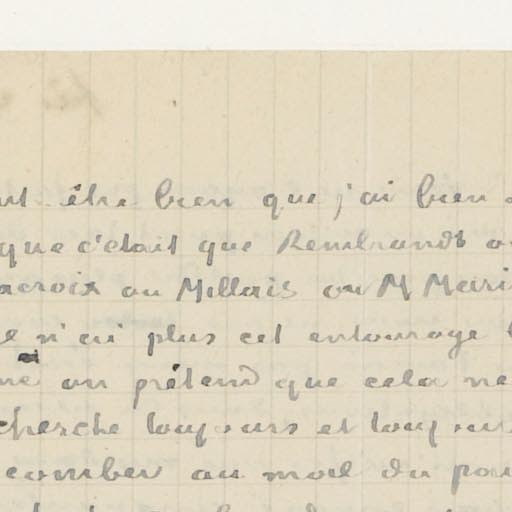 être bien que j'ai bien
que c'etait que Rembrandt
acroix ou Millais ou M Maris
n'ai plus cet entourage
on prétend que cela ne
cherche toujours et toujours
comber au moel du